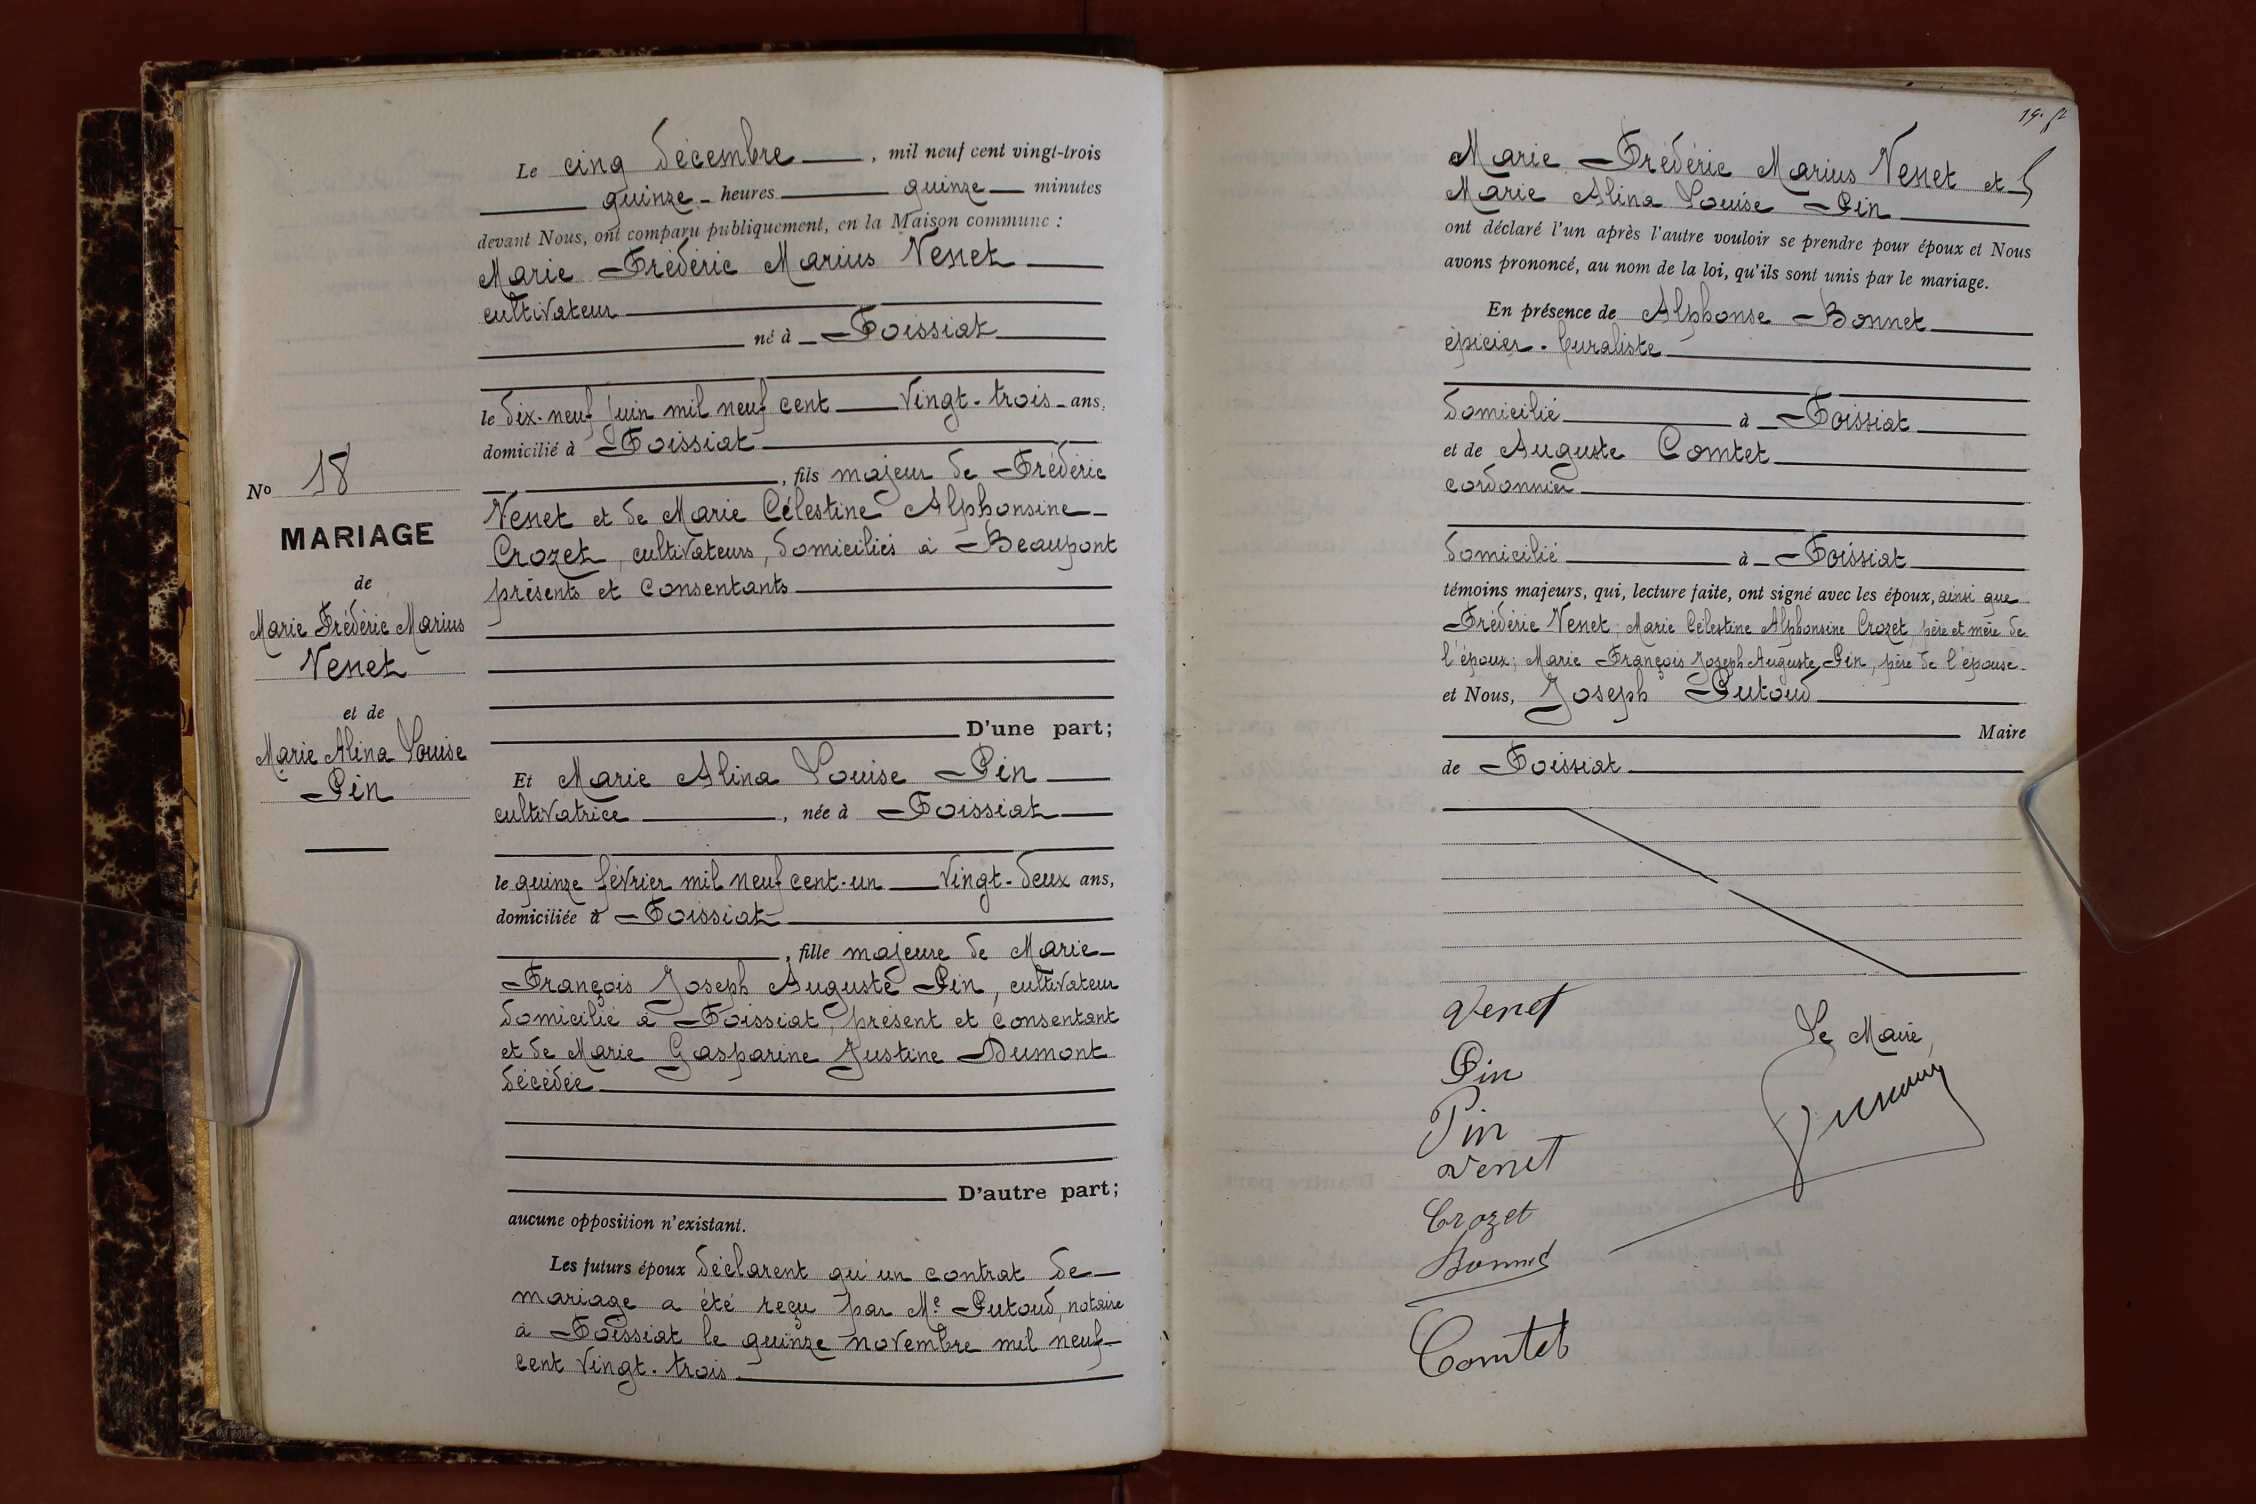 Le cinq décembre, mil neuf cent vingt-trois
quinze heures quinze minutes
devant Nous, ont comparu publiquement, en la Maison commune :
Marie Frédéric Marius Venet
cultivateur
né à Foissiat
le dix-neuf juin mil neuf cent vingt-trois ans,
domicilié à Foissiat
, fils majeur de Frédéric
Venet et de Marie Célestine Alphonsine
Crozet, cultivateurs, domiciliés à Beaupont
présents et consentants
D'une part;
Et Marie Alina Louise Pin
cultivatrice, née à Foissiat
le quinze février mil neuf cent-un vingt-deux ans,
domiciliée à Foissiat
, fille majeure de Marie
François Joseph Auguste Pin, cultivateur
domicilié à Foissiat, présent et consentant
et de Marie Gasparine Justine Dumont
décédée
D'autre part;
aucune opposition n'existant.
Les futurs époux déclarent qu'un contrat de
mariage a été reçu par Me Putoud, notaire
à Foissiat le quinze novembre mil neuf
cent vingt-trois
No 18
MARIAGE
de
Marie Frédéric Marius
Venet
et de
Marie Alina Louise
Pin
Marie Frédéric Marius Venet et
Marie Alina Louise Pin
ont déclaré l'un après l'autre vouloir se prendre pour époux et Nous
avons prononcé, au nom de la loi, qu'ils sont unis par le mariage.
En présence de Alphonse Bonnet
épicier-buraliste
domicilié à Foissiat
et de Auguste Comtet
cordonnier
domicilié à Foissiat
témoins majeurs, qui, lecture faite, ont signé avec les époux, ainsi que
Frédéric Venet, Marie Célestine Alphonsine Crozet, père et mère de
l'époux; Marie François Joseph Auguste Pin, père de l'épouse
et Nous, Joseph Putoud
Maire
de Foissiat
Venet
Pin
Pin
Venet
Crozet
Bonnet
Comtet
Le Maire,